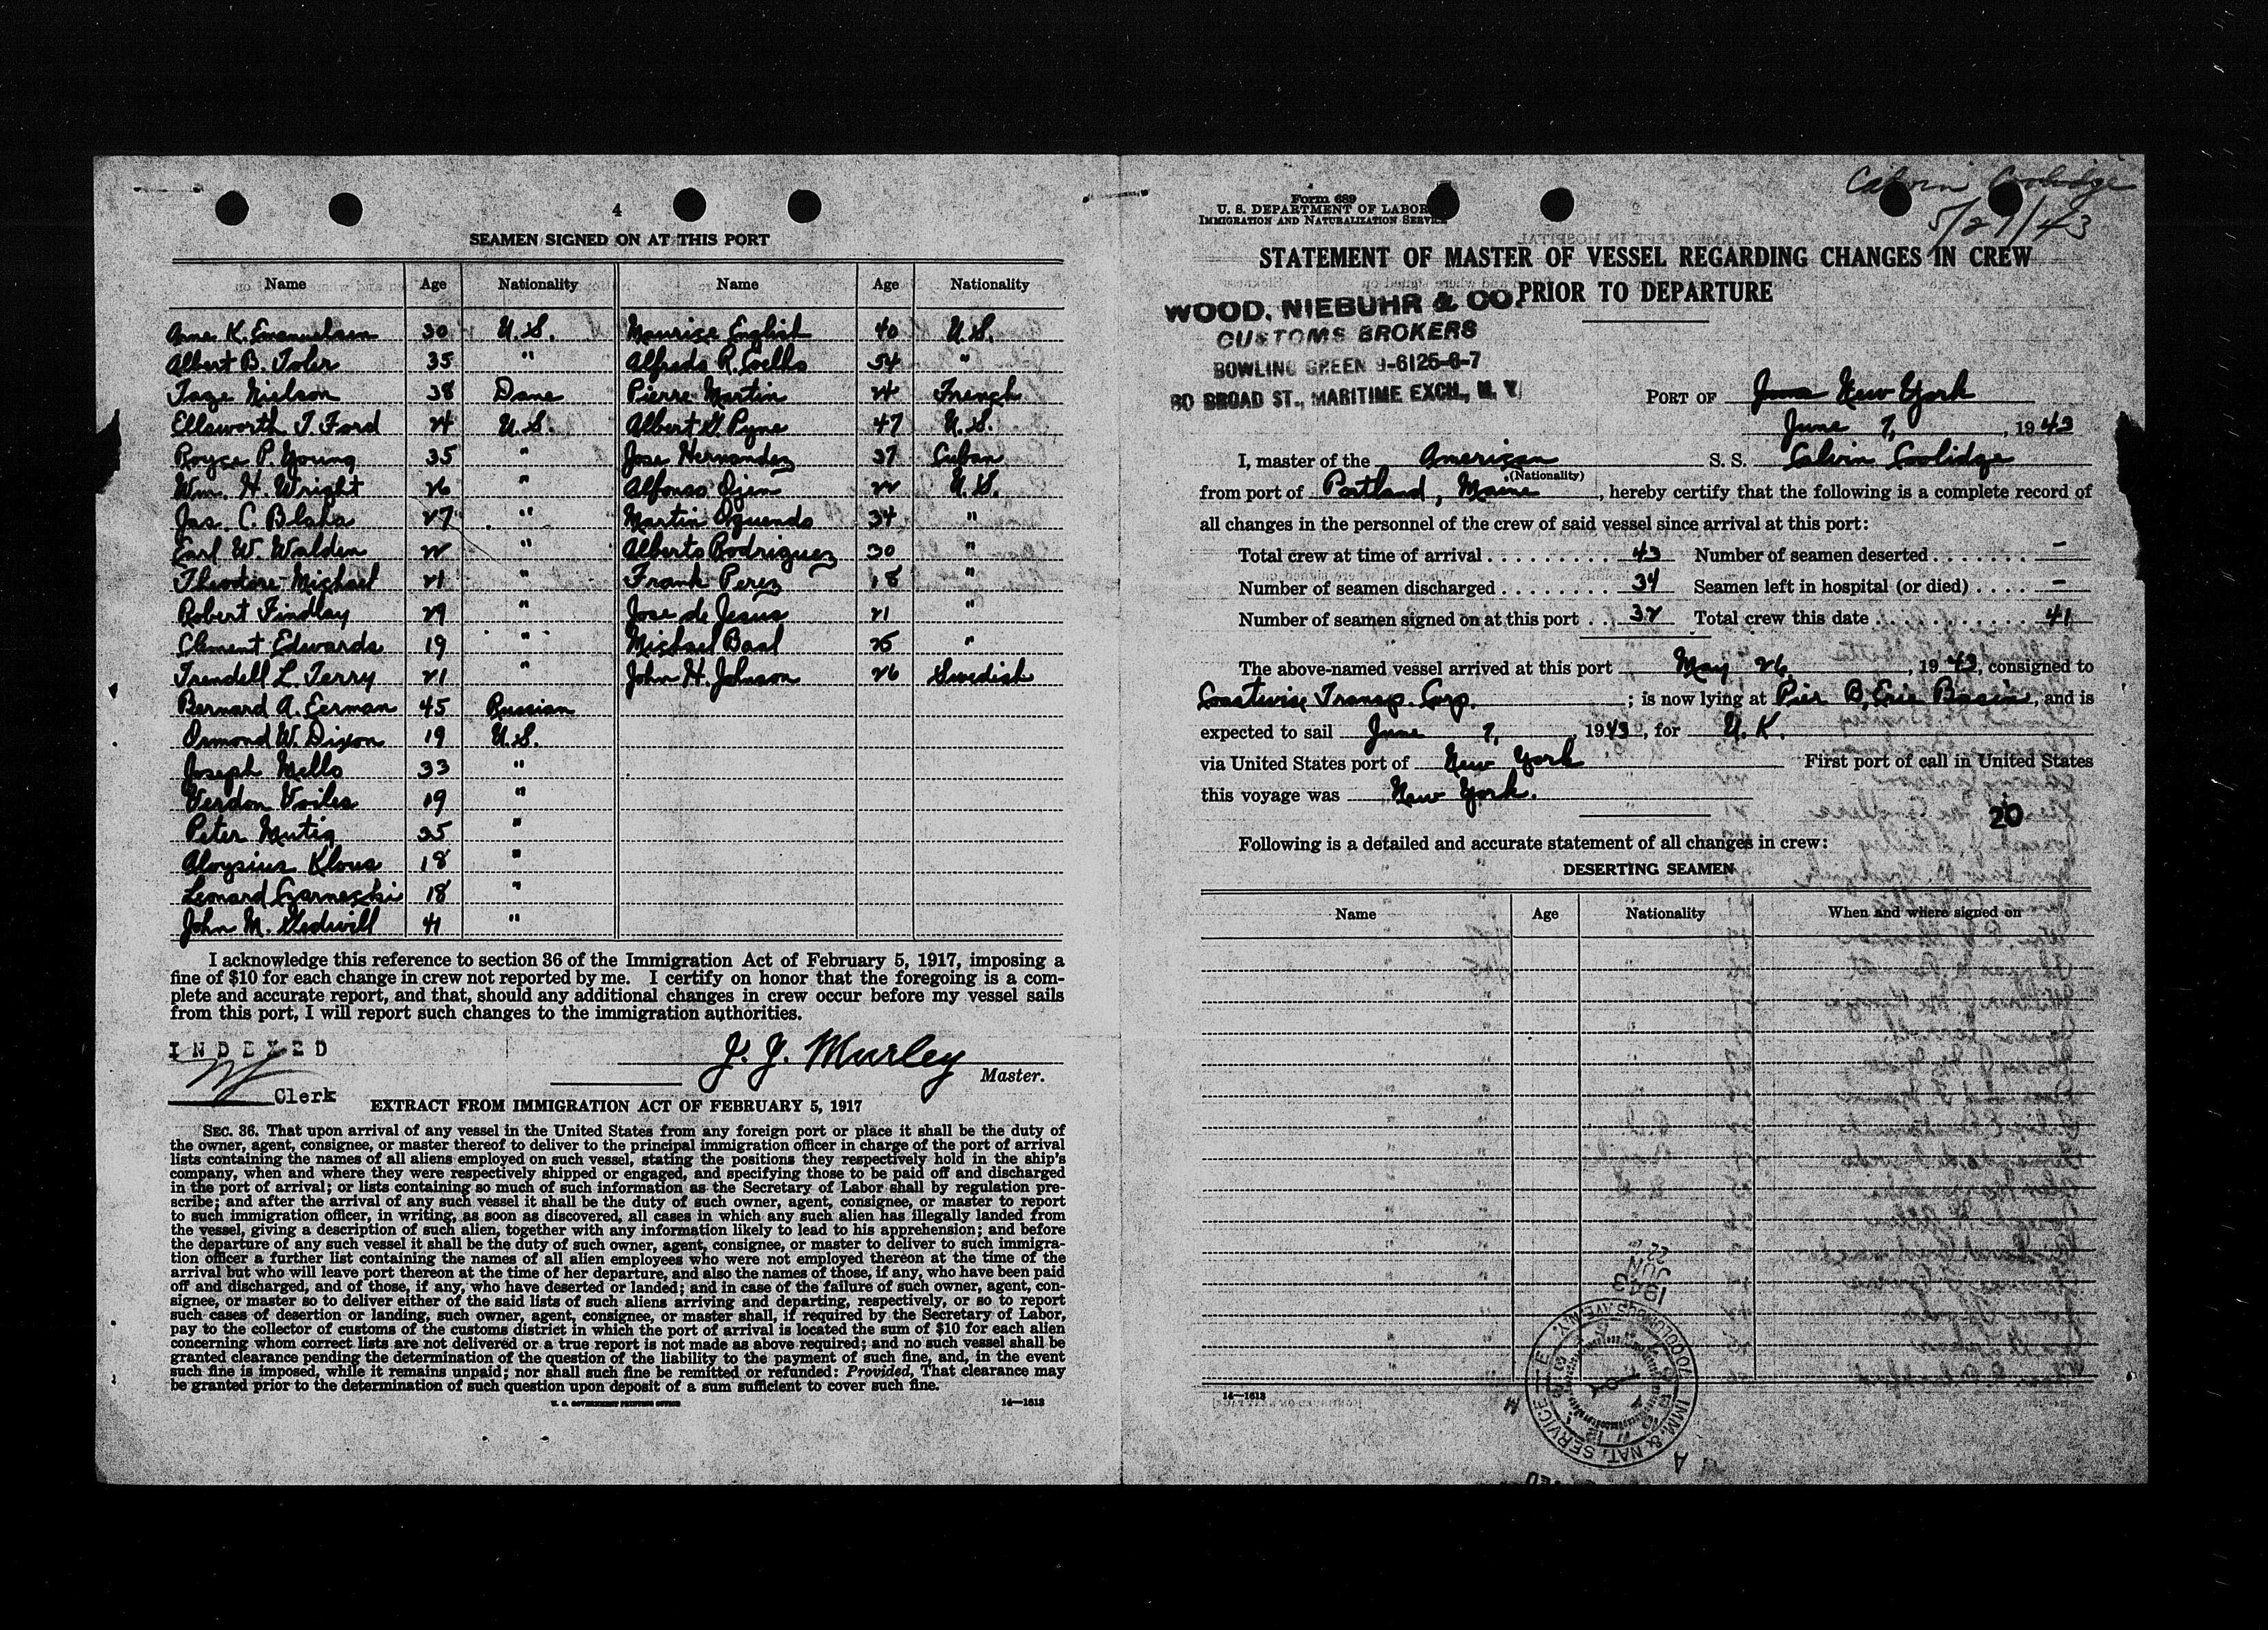 4
SEAMEN SIGNED ON AT THIS PORT
Name Age Nationality Name Age Nationality
Arne K. Emanuelsen 30 U.S. Maurice English 40 U.S.
Albert B. Toler 35 " Alfredo R. Coelho 54 "
Tage Nielson 38 Dane Pierre Martin 24 French
Ellsworth T. Ford 24 U.S. Albert G. Pyne 47 U.S.
Royce P. Young 35 " Jose Hernandez 37 Cuban
Wm. H. Wright 26 " Alfonso 22 U.S.
Jas. C. Blaha 27 " Martin Oquendo 34 "
Earl W. Walden 22 " Alberto Rodriguez 30 "
Theodore Michael 21 " Frank Perez 18 "
Robert Findlay 29 " Jose de Jesus 21 "
Clement Edwards 19 " Michael Baal 25 "
Trendell L. Terry 21 " John H. Johnson 26 Swedish
Bernard A. Eerman 45 Russian
Ormond W. Dixon 19 U.S.
Joseph Mello 33 "
Verdon Voiles 19 "
Peter Mutig 35 "
Aloysius Klous 18 "
Leonard Czarnecki 18 "
John M. Gedwill 41 "
I acknowledge this reference to section 36 of the Immigration Act of February 5, 1917, imposing a
fine of $10 for each change in crew not reported by me. I certify on honor that the foregoing is a com-
plete and accurate report, and that, should any additional changes in crew occur before my vessel sails
from this port, I will report such changes to the immigration authorities.
INDEXED
J. J. Murley
Master.
Clerk
EXTRACT FROM IMMIGRATION ACT OF FEBRUARY 5, 1917
SEC. 36. That upon arrival of any vessel in the United States from any foreign port or place it shall be the duty of
the owner, agent, consignee, or master thereof to deliver to the principal immigration officer in charge of the port of arrival
lists containing the names of all aliens employed on such vessel, stating the positions they respectively hold in the ship's
company, when and where they were respectively shipped or engaged, and specifying those to be paid off and discharged
in the port of arrival; or lists containing so much of such information as the Secretary of Labor shall by regulation pre-
scribe; and after the arrival of any such vessel it shall be the duty of such owner, agent, consignee, or master to report
to such immigration officer, in writing, as soon as discovered, all cases in which any such alien has illegally landed from
the vessel, giving a description of such alien, together with any information likely to lead to his apprehension; and before
the departure of any such vessel it shall be the duty of such owner, agent, consignee, or master to deliver to such immigra-
tion officer a further list containing the names of all alien employees who were not employed thereon at the time of the
arrival but who will leave port thereon at the time of her departure, and also the names of those, if any, who have been paid
off and discharged, and of those, if any, who have deserted or landed; and in case of the failure of such owner, agent, con-
signee, or master so to deliver either of the said lists of such aliens arriving and departing, respectively, or so to report
such cases of desertion or landing, such owner, agent, consignee, or master shall, if required by the Secretary of Labor,
pay to the collector of customs of the customs district in which the port of arrival is located the sum of $10 for each alien
concerning whom correct lists are not delivered or a true report is not made as above required; and no such vessel shall be
granted clearance pending the determination of the question of the liability to the payment of such fine, and, in the event
such fine is imposed, while it remains unpaid; nor shall such fine be remitted or refunded: Provided, That clearance may
be granted prior to the determination of such question upon deposit of a sum sufficient to cover such fine.
U. S. GOVERNMENT PRINTING OFFICE 14—1613
Calvin Coolidge
5/27/43
Form 689
U. S. DEPARTMENT OF LABOR
IMMIGRATION AND NATURALIZATION SERVICE
STATEMENT OF MASTER OF VESSEL REGARDING CHANGES IN CREW
PRIOR TO DEPARTURE
WOOD, NIEBUHR & CO.
CUSTOMS BROKERS
BOWLING GREEN 9-6125-6-7
80 BROAD ST., MARITIME EXCH., N. Y.
PORT OF June New York
June 7, , 1943
I, master of the American S. S. Calvin Coolidge
(Nationality)
from port of Portland, Maine , hereby certify that the following is a complete record of
all changes in the personnel of the crew of said vessel since arrival at this port:
Total crew at time of arrival . . . . . . . . . . 43 Number of seamen deserted . . . . . . . . –
Number of seamen discharged . . . . . . . . 34 Seamen left in hospital (or died) . . . . –
Number of seamen signed on at this port . . 32 Total crew this date . . . . . . . . . . . . . 41
The above-named vessel arrived at this port May 26, , 1943, consigned to
Coastwise Transp. Corp. ; is now lying at Pier B, Erie Basin, and is
expected to sail June 7, , 1943, for U.K.
via United States port of New York First port of call in United States
this voyage was New York.
20
Following is a detailed and accurate statement of all changes in crew:
DESERTING SEAMEN
Name Age Nationality When and where signed on
1943
JUN
22
IMM. & NAT. SERVICE
14—1613